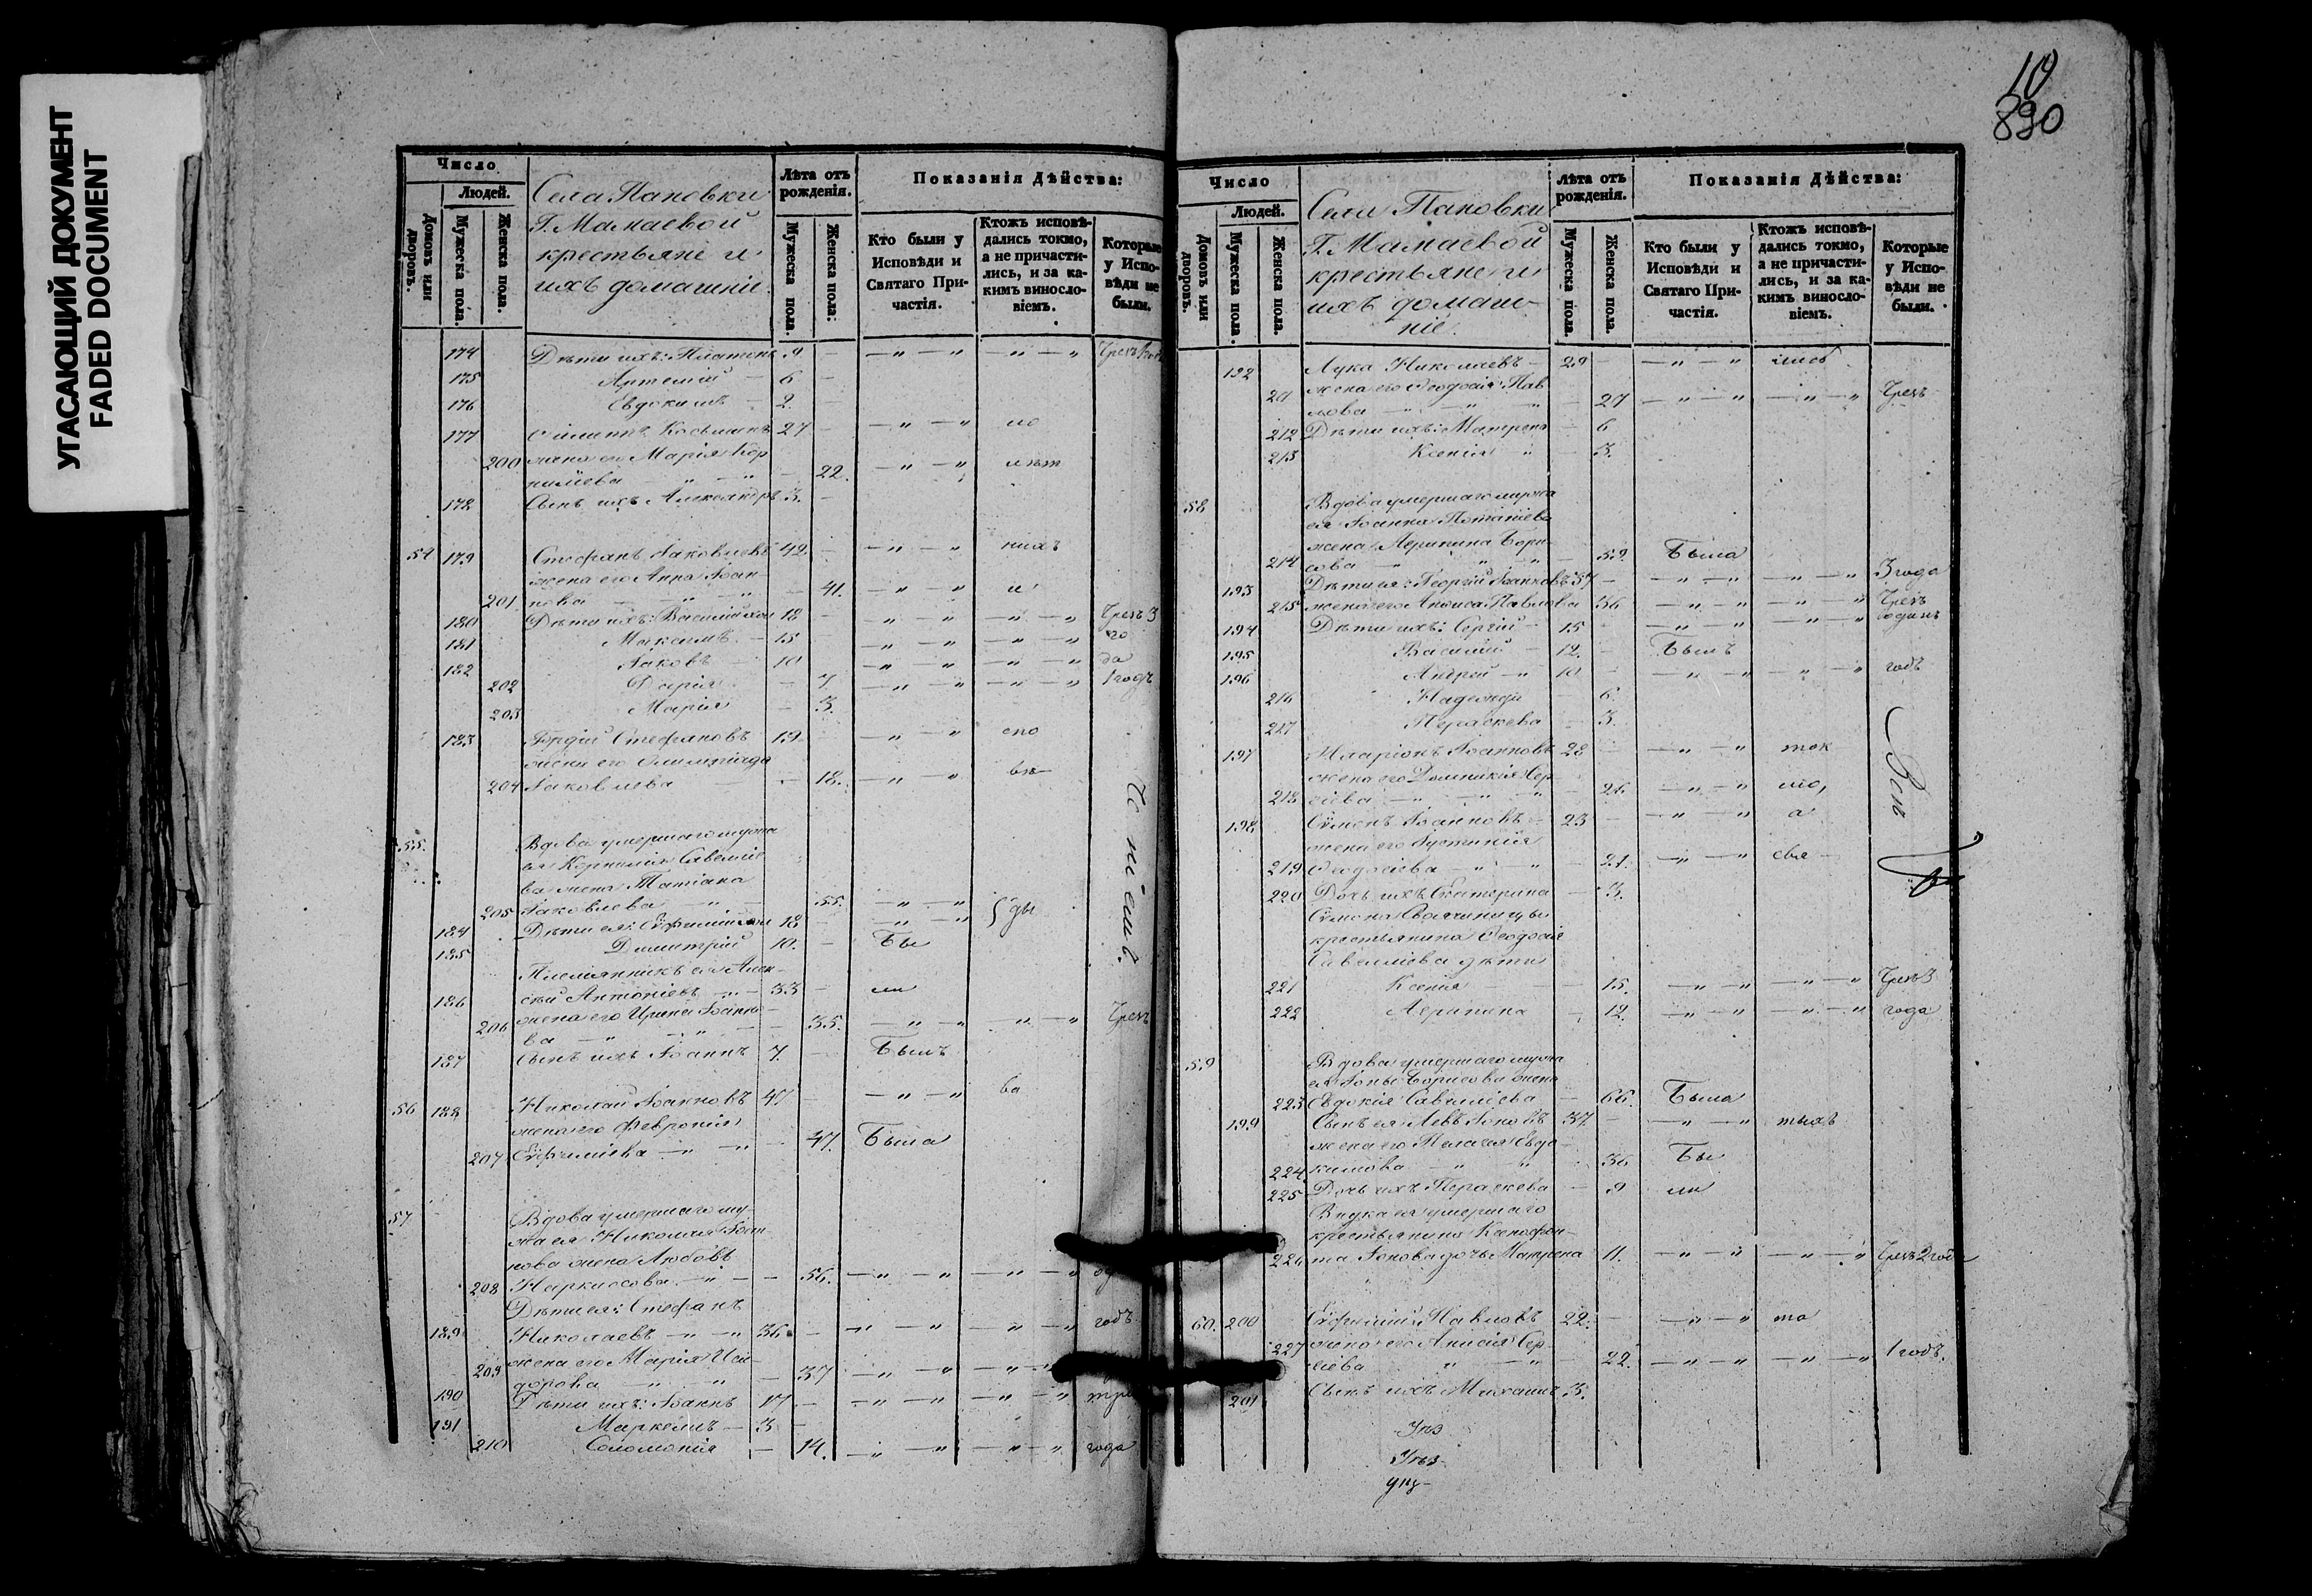 УГАСАЮЩИЙ ДОКУМЕНТ
FADED DOCUMENT
10
830
Число
Людей.
Домовъ или дворовъ.
Мужеска пола.
Женска пола.
Села Пановки
Г. Мамаевой
крестьяне и
ихъ домашніе.
Лѣта отъ рожденія.
Мужеска пола.
Женска пола.
Показанія Дѣйства:
Кто были у Исповѣди и Святаго Причастія.
Ктожъ исповѣдались токмо, а не причастились, и за какимъ винословіемъ.
Которые у Исповѣди не были.
174 Дѣти ихъ: Платонъ 9 — — „ — „ — „ — „ Чрезъ
175 Артемій — 6 —
176 Евдокимъ — 2. —
177 Косьминъ 27 — — „ — „ ло
200 жена его Марія Кор
нилиева — „ — „ — 22. — „ — „
178 Сынъ ихъ Александръ 3. —
54 179 Стефанъ Іаковлевъ 42. — — „ — „ нихъ
жена его Анна Іоан
201 нова — „ — „ — 41. — „ — „ и
180 Дѣти ихъ: Василій 18 — „ — „ „ — „ Чрезъ 3
181 Максимъ. — 15 — „ — „ „ „ го
182 Іаковъ — 10 — „ — „ — „ — „ да
202 Дарія — 7 — „ — „ — „ — „ 1 годъ
203 Марія — 3.
183 Стефановъ 19 — „ — „ спо
жена его Олимпіада
204 Іаковлева — — 18. — „ — „ вѣ
55. Вдова умершаго мужа
ея Корнилія Савеліе
ва жена Татіана
205 Іаковлева — „ — 55. — „ — „
184 Дѣти ея: Евфимій 18 — — „ — „ ды
185 Димитрій 10. — Бы
Племянникъ ея Алек
186 сѣй Антоніевъ — „ — 33 — ли
206 жена его Ирина Іоанно
ва — „ — „ — 35. — „ — „ „ — „ Чрезъ
187 Сынъ ихъ Іоаннъ 7. — Былъ
56 188 Николай Іоанновъ 47 — — „ — „ ва
жена его Феврониія
207 Евфиміева — „ — „ — 47. Была
57 Вдова умершаго му
жа ея Николая Іоан
нова жена Любовь
208 Наркисова. — „ — — 56. — „ — „ — „ — „
Дѣти ея: Стефанъ
189 Николаевъ — „ — „ 36. — — „ — „ — „ — „ годъ
209 жена его Марія Иси
дорова — „ — „ — 37 — „ — „ — „ — „
190 Дѣти ихъ: Іоаннъ 17 — — „ — „ — „ — „ три
191 Маркеллъ — 3 —
210 Соломонія — 14. — „ — „ — „ — „ года
ченіемъ.
Число
Людей.
Домовъ или дворовъ.
Мужеска пола.
Женска пола.
Села Пановки
Г. Мамаевой
крестьяне и
ихъ домаш
ніе.
Лѣта отъ рожденія.
Мужеска пола.
Женска пола.
Показанія Дѣйства:
Кто были у Исповѣди и Святаго Причастія.
Ктожъ исповѣдались токмо, а не причастились, и за какимъ винословіемъ.
Которые у Исповѣди не были.
192 Лука Николаевъ — 29 — — „ — „
жена его Ѳеодосія Пав
лова — „ — „ — 27 — „ — „ — „ — „ Чрезъ
212 Дѣти ихъ: Матрена — 6
213 Ксенія „ — 3.
58 Вдова умершаго мужа
ея Іоанна Потапіева
жена Агрипина Бори
214 сова — „ — „ — 59 Была
193 Дѣти ея: Георгій Іоанновъ 37 — — „ — „ — „ — „ 3 года
215 жена его Анфиса Павлова 36 — „ — „ — „ — „ Чрезъ
194 Дѣти ихъ: Сергій — 15 — — „ — „ — „ — „ одинъ
195 Василій — 12. — Былъ
196 Андрей — „ 10 — — „ — „ „ — „ годъ
216 Надежда 6.
217 Параскева 3.
197 Иларіонъ Іоанновъ 28 — — „ — „ ток
жена его Домникія Сер
218 гіева — „ — „ — 26 — „ — „ мо,
198 Сѵмеонъ Іоанновъ — 23 — „ — „ а
жена его Іустинія
219 Ѳеодосіева — „ — „ — 21. — „ — „ свя
220 Дочь ихъ Екатерина — 3.
крестьянина Ѳеодосія
Савелліева дѣти
221 Ксенія — — 15. — „ — „ — „ — „ Чрезъ 3
222 Агрипина — 12. — „ — „ — „ — „ года
59 Вдова умершаго мужа
ея Іоны Борисова жена
223 Евдокія Савиліева — 66. Была
199 Сынъ ея Левъ Іоновъ 37. — — „ — „ тыхъ
жена его Пелагея Евдо
224 кимова — „ — „ — 36 Бы
225 Дочь ихъ Параскева — 9 ли
Внука ея умершаго
крестьянина Ксенофон
226 та Іонова дочь Матрена 11. — „ — „ — „ — „ Чрезъ 2 года
60. 200 Евфимій Павловъ 22. — — „ — „ та
227 жена его Анисія Сер
гіева „ — „ 22. — „ — „ — „ — „ 1 годъ.
201 Сынъ ихъ Михаилъ 3.